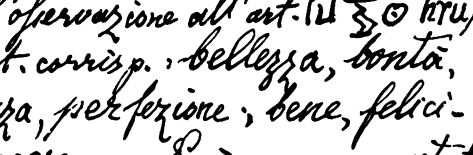 osservazione all' art.
t. corrisp. , bellezza, bontà,
za, perfezione , bene, felici-